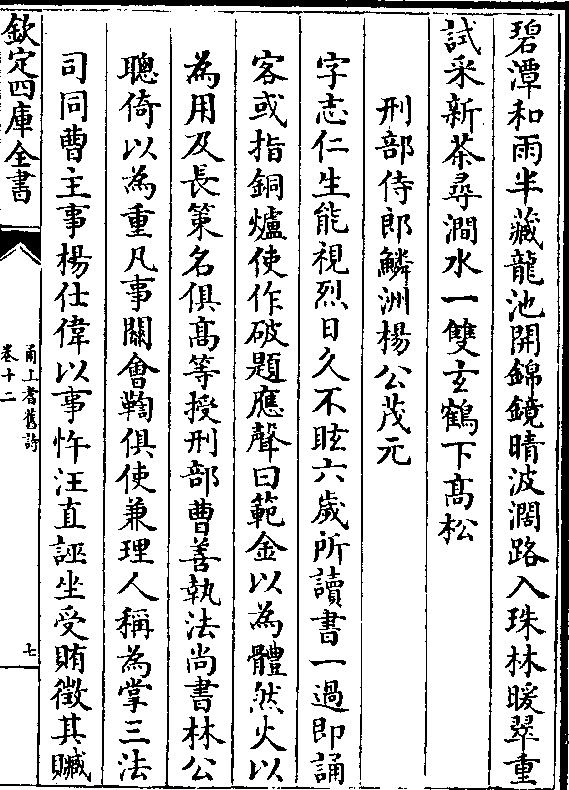 碧潭和雨半藏龍池開錦鏡晴波濶路入珠林暖翠重
試采新茶尋澗水一雙玄鶴下髙松
刑部侍郎鱗洲楊公茂元
字志仁生能視烈日久不眩六歲所讀書一過即誦
客或指銅爐使作破題應聲曰範金以為體然火以
為用及長策名俱髙等授刑部曹善執法尚書林公
聰倚以為重凡事關會鞫俱使兼理人稱為掌三法
司同曹主事楊仕偉以事忤汪直誣坐受賄徵其贓
欽定四庫全書
甬上耆舊詩
卷十二
七